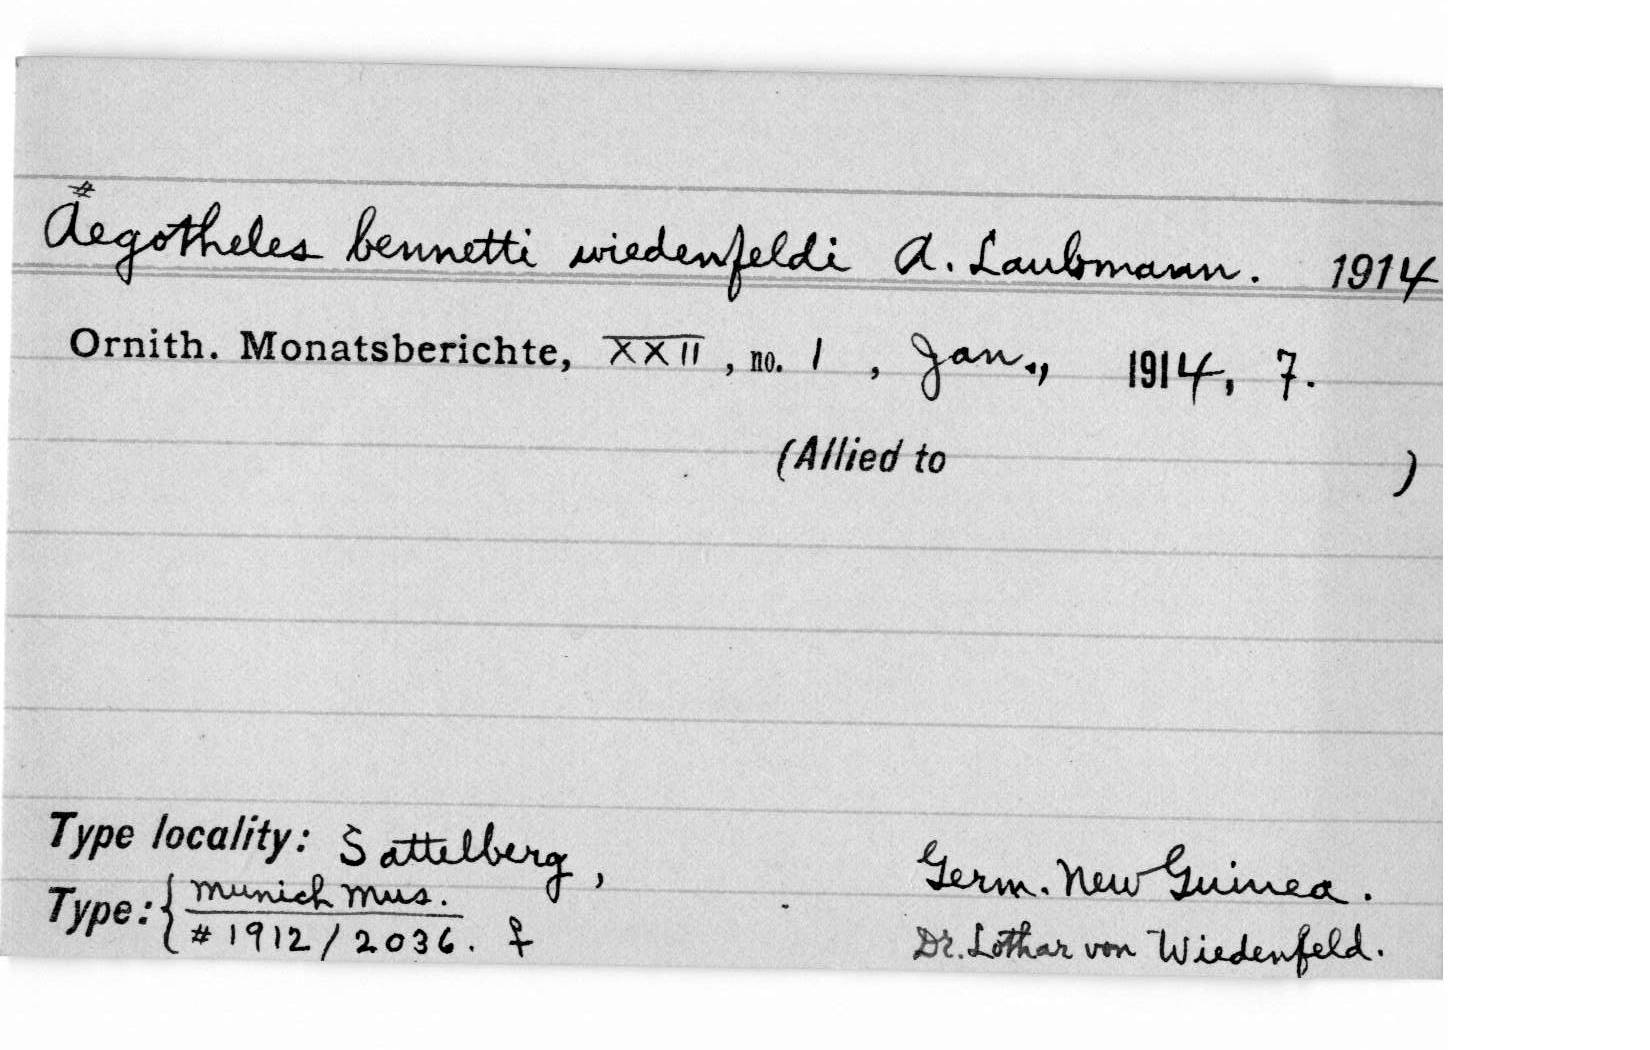 #
Aegotheles bennetti wiedenfeldi A. Laubmann. 1914
Ornith. Monatsberichte, XXII, no. 1, Jan., 1914, 7.
(Allied to )
Type locality: Sattelberg, Germ. New Guinea.
Type: { Munich Mus.
# 1912/2036. ♀ Dr. Lothar von Wiedenfeld.